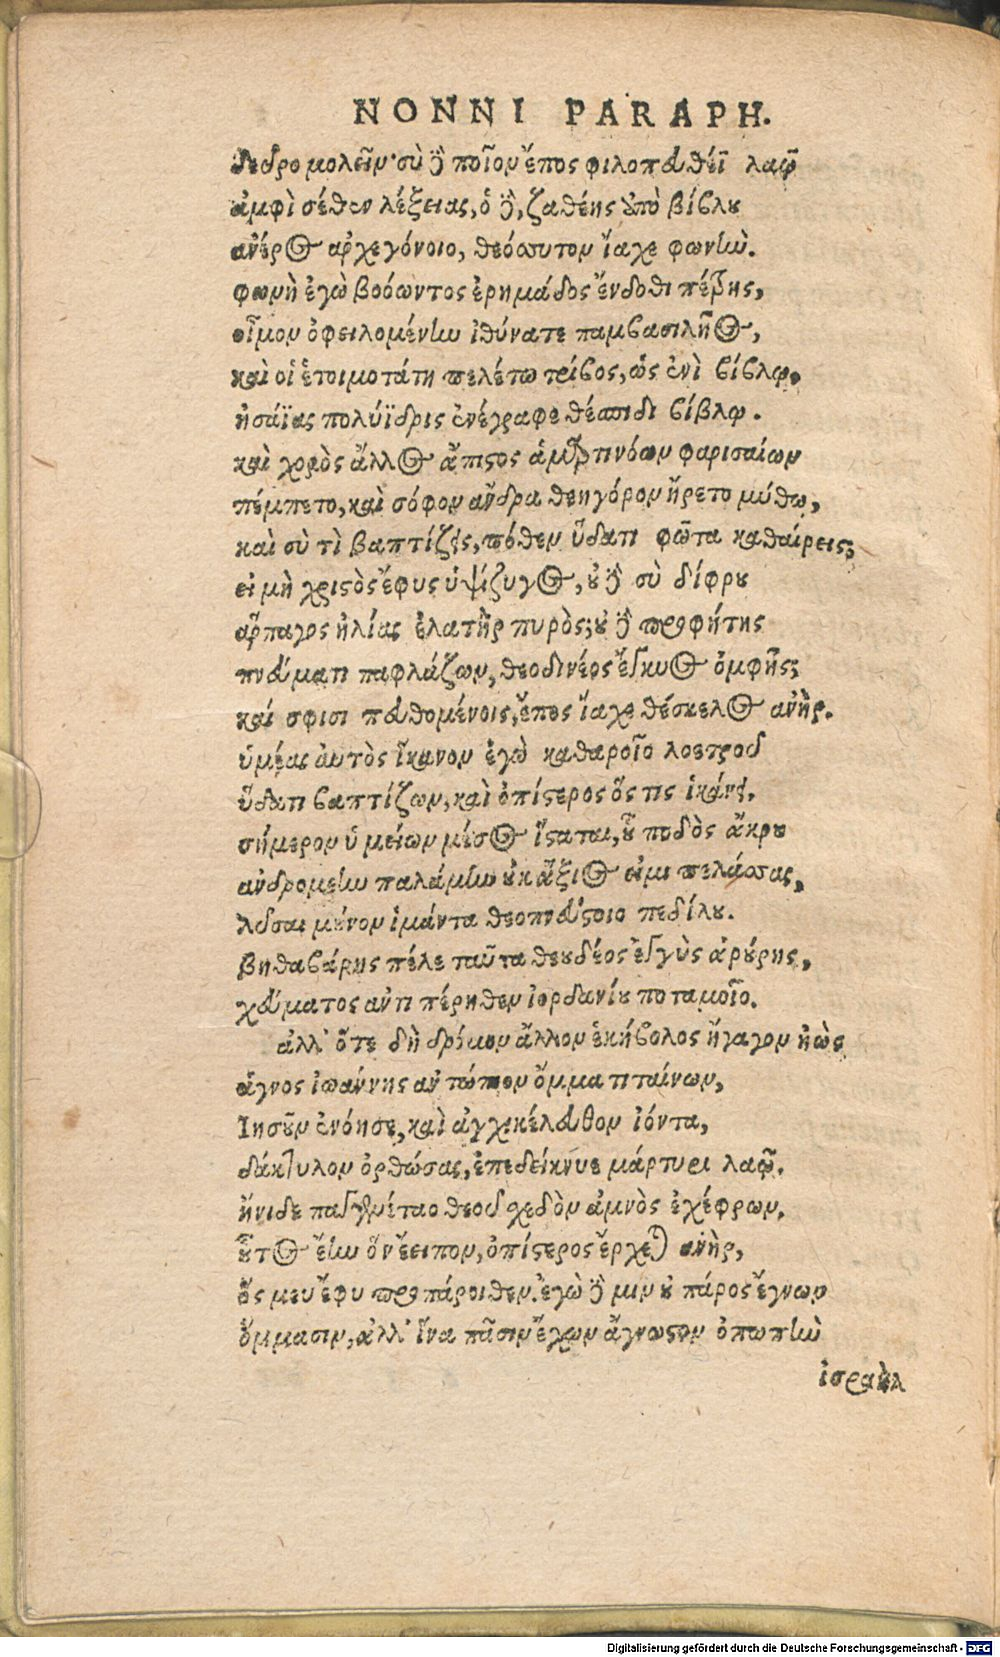 NONNI PARAPH.
δεῦρο μολεῖν· σὺ δὲ ποῖον ἔπος φιλοπευθέϊ λαῷ
ἀμφὶ σέθεν λέξειας, ὁ δὲ, ζαθέης ὑπὸ βίβλου
ἀνέρος ἀρχεγόνοιο, θεόσσυτον ἴαχε φωνήν.
φωνὴ ἐγὼ βοόωντος ἐρημάδος ἔνδοθι πέζης,
οἶμον ὀφειλομένην ἰθύνατε παμβασιλῆος,
καὶ οἱ ἑτοιμοτάτη πελέτω τρίβος, ὡς ἐνὶ βίβλῳ,
ἡσαΐας πολύϊδρις ἐνέγραφε θέσπιδι βίβλῳ.
καὶ χορὸς ἄλλος ἄπιστος ἁμαρτινόων φαρισαίων
πέμπετο, καὶ σόφον ἄνδρα θεηγόρον ἤρετο μύθω,
καὶ σὺ τὶ βαπτίζεις, πόθεν ὕδατι φῶτα καθαίρεις;
εἰ μὴ χριστὸς ἔφυς ὑψίζυγος, οὐ δὲ σὺ δίφρου
ἅρπαγος ἠλίας ἐλατὴρ πυρὸς; οὐ δὲ προφήτης
πνεύματι παφλάζων, θεοδινέος ἔγκυος ὀμφῆς;
καί σφισι πευθομένοις, ἔπος ἴαχε θέσκελος ἀνὴρ.
ὑμέας αὐτὸς ἵκανον ἐγὼ καθαροῖο λοετροῦ
ὕδατι βαπτίζων, καὶ ὀπίστερος ὅς τις ἱκάνει.
σήμερον ὑμείων μέσος ἵσταται, οὗ ποδὸς ἄκρου
ἀνδρομέην παλάμην οὐκ ἄξιος εἰμι πελάσσας,
λῦσαι μόνον ἱμάντα θεοπνεύστοιο πεδίλου.
βηθαβάρης πέλε ταῦτα θεουδέος ἐγγὺς ἀρούρης,
χεύματος ἀντιπέρηθεν ἰορδανίου ποταμοῖο.
ἀλλ' ὅτε δὴ δρόμον ἄλλον ἑκήβολος ἤγαγον ἠὼς
ἁγνος ἰωάννης ἀντώπιον ὄμμα τιταίνων,
Ιησοῦν ἐνόησε, καὶ ἀγχικέλευθον ἰόντα,
δάκτυλον ὀρθώσας, ἐπεδείκνυε μάρτυρι λαῷ.
ἤνιδε παγγενέταο θεοῦ σχεδὸν ἀμνὸς ἐχέφρων.
οὗτος ἔην ὃν ἔειπον, ὀπίστερος ἔρχεται ἀνὴρ,
ὅς μευ ἔφυ προπάροιθεν. ἐγὼ δὲ μιν οὐ πάρος ἔγνων
ὄμμασιν, ἀλλ' ἵνα πᾶσιν ἔχων ἄγνωστον ὀπωπὴν
ἰσραὴλ
Digitalisierung gefördert durch die Deutsche Forschungsgemeinschaft - DFG